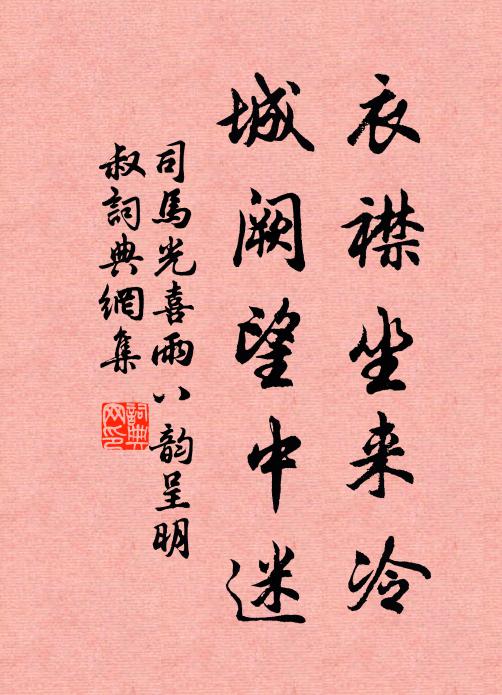 衣襟坐来冷
城阙望中迷
司馬光喜雨八韵呈明
叔詞典網集
詞典
网印